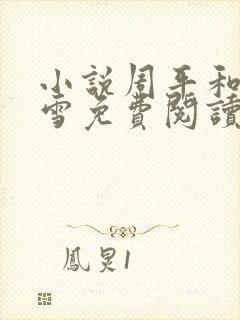 小說周平和
雪免費閱讀
鳳炅1